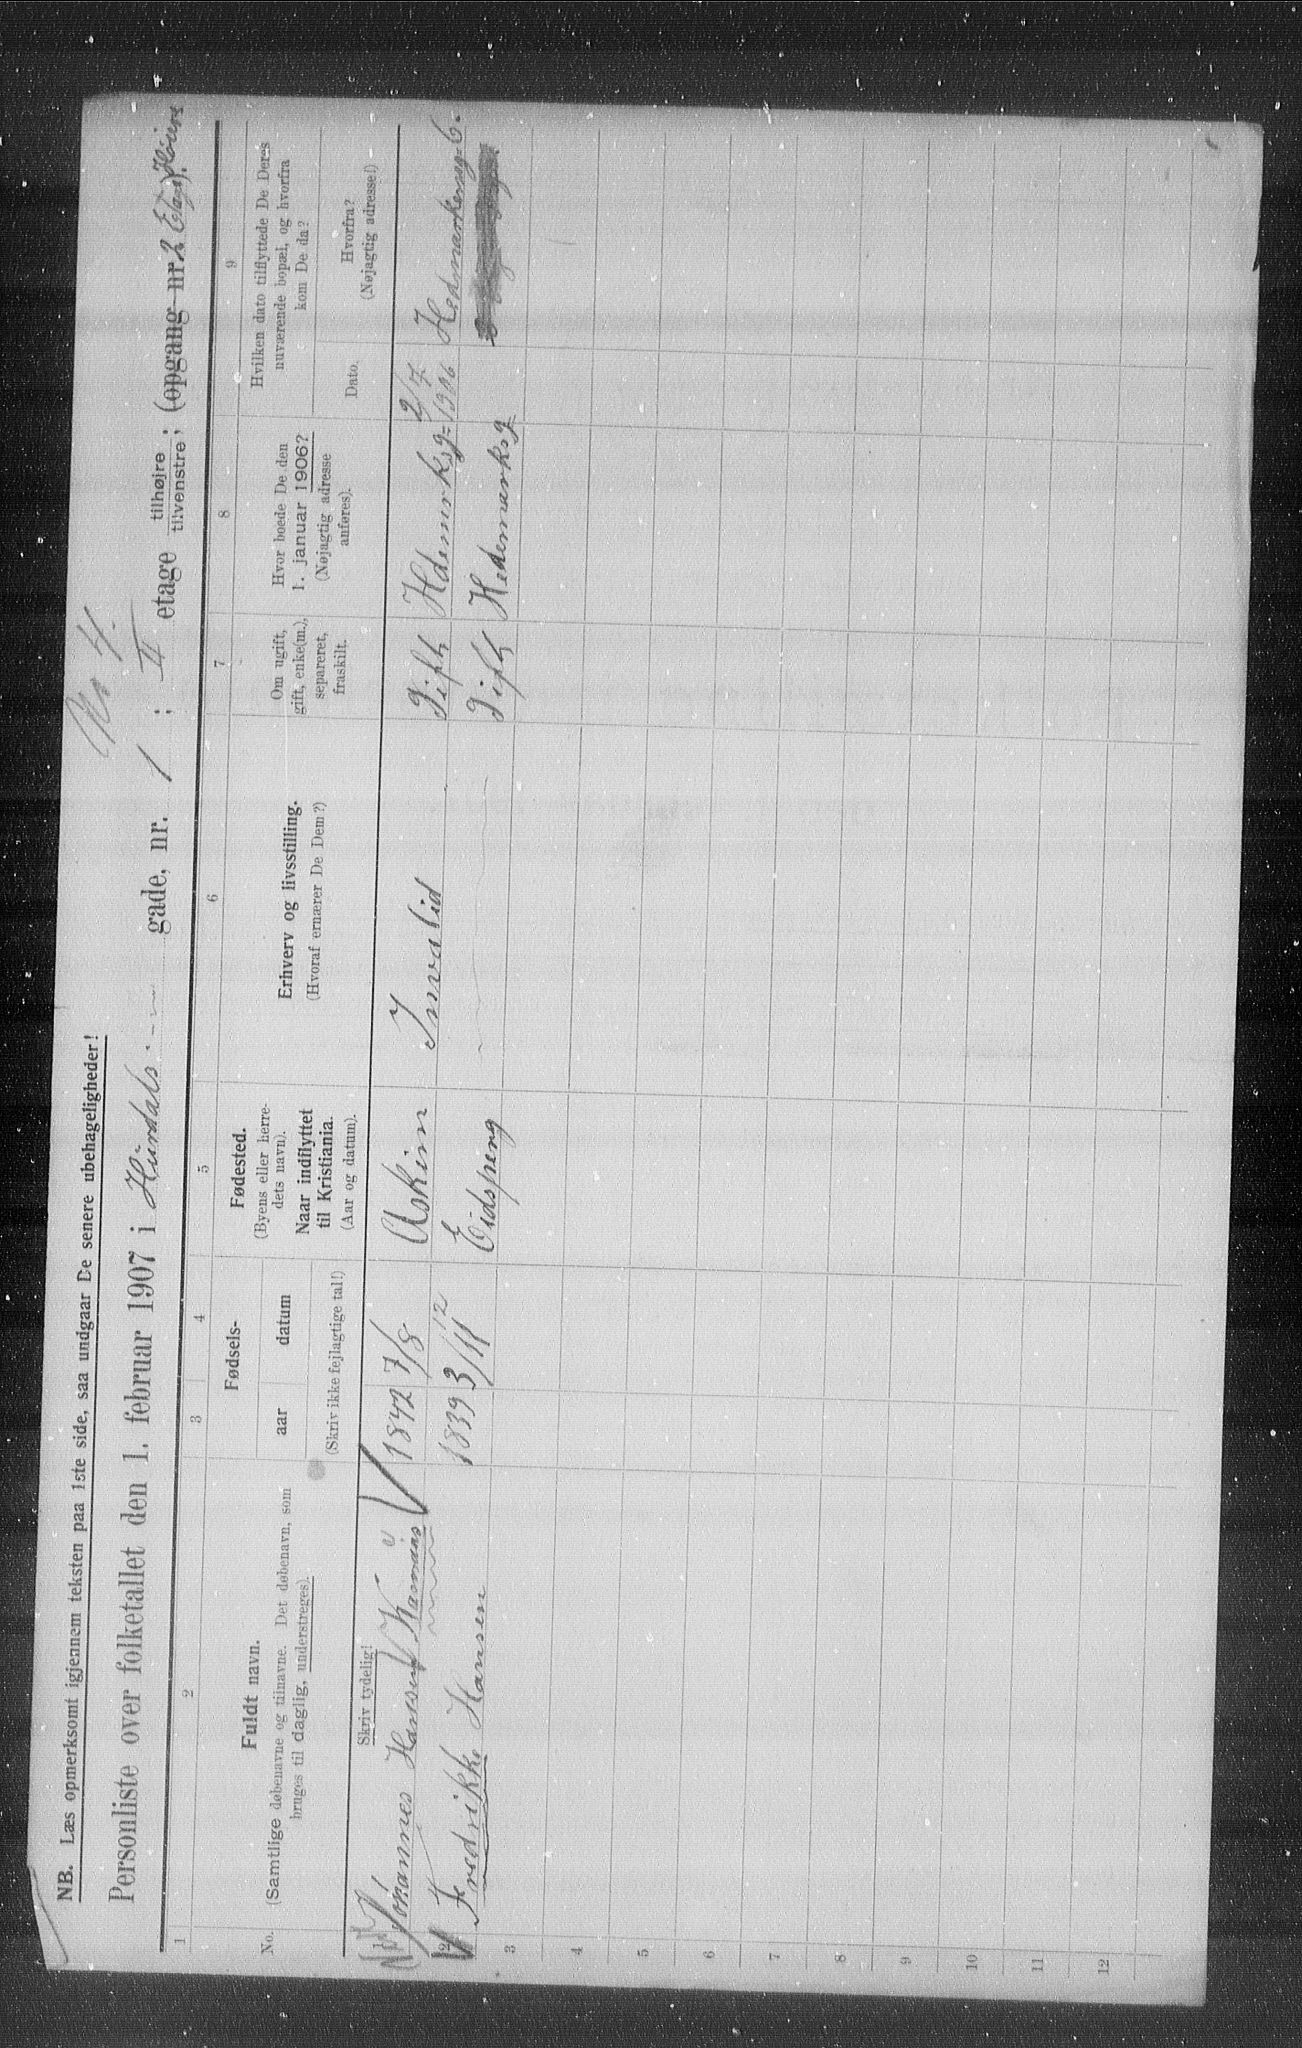 No 4.
NB. Læs opmerksomt igjennem teksten paa 1ste side, saa undgaar De senere ubehageligheder!
Personliste over folketallet den 1. februar 1907 i Hurdals gade, nr. 1 ; II etage tilhøjre tilvenstre; (opgang nr. 2 Etag. Høire).
1 2 3 4 5 6 7 8 9
No.
Fuldt navn.
(Samtlige døbenavne og tilnavne. Det døbenavn, som
bruges til daglig, understreges).
Fødsels-
aar datum
(Skriv ikke fejlagtige tal!)
Fødested.
(Byens eller herre-
dets navn).
Naar indflyttet
til Kristiania.
(Aar og datum).
Erhverv og livsstilling.
(Hvoraf ernærer De Dem?)
Om ugift,
gift, enke(m.),
separeret,
fraskilt.
Hvor boede De den
1. januar 1906?
(Nøjagtig adresse
anføres).
Hvilken dato tilflyttede De Deres
nuværende bopæl, og hvorfra
kom De da?
Dato.
Hvorfra?
(Nøjagtig adresse!)
Skriv tydelig!
1 Johannes Hansen 1842 7/8 Askim Invalid Gift Hdemrksg= 2/7 1906 Hedmarkensg= 6.
2 Fredrikke Hansen 1839 3/11 12 Eidsperg Gift Hedemarksg=
3
4
5
6
7
8
9
10
11
12